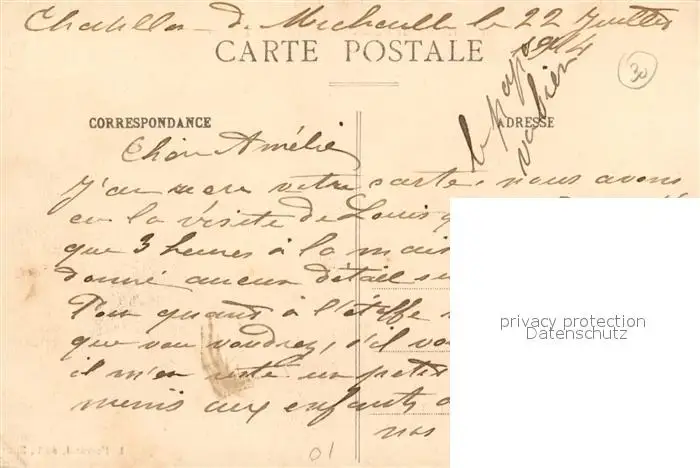 Chatillon-de-Michaille le 22 Juillet
1914
CARTE POSTALE
30
le papa
va bien
CORRESPONDANCE
ADRESSE
Chère Amélie
J'ai votre carte. nous avons
eu la visite de Louis
que 3 heures à la mais
donné aucun détail su
Pour quant à l'étoffe
que vous voudrez, s'il vo
il m'en reste un petit
aux enfants
nos
01
privacy protection
Datenschutz